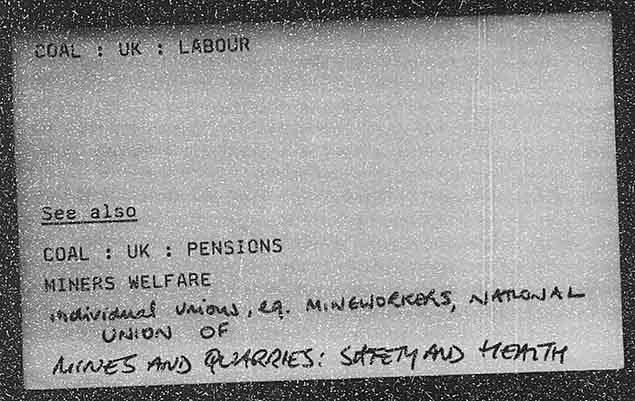 COAL : UK : LABOUR
See also
COAL : UK : PENSIONS
MINERS WELFARE
individual unions, eg. MINEWORKERS, NATIONAL
UNION OF
MINES AND QUARRIES: SAFETY AND HEALTH